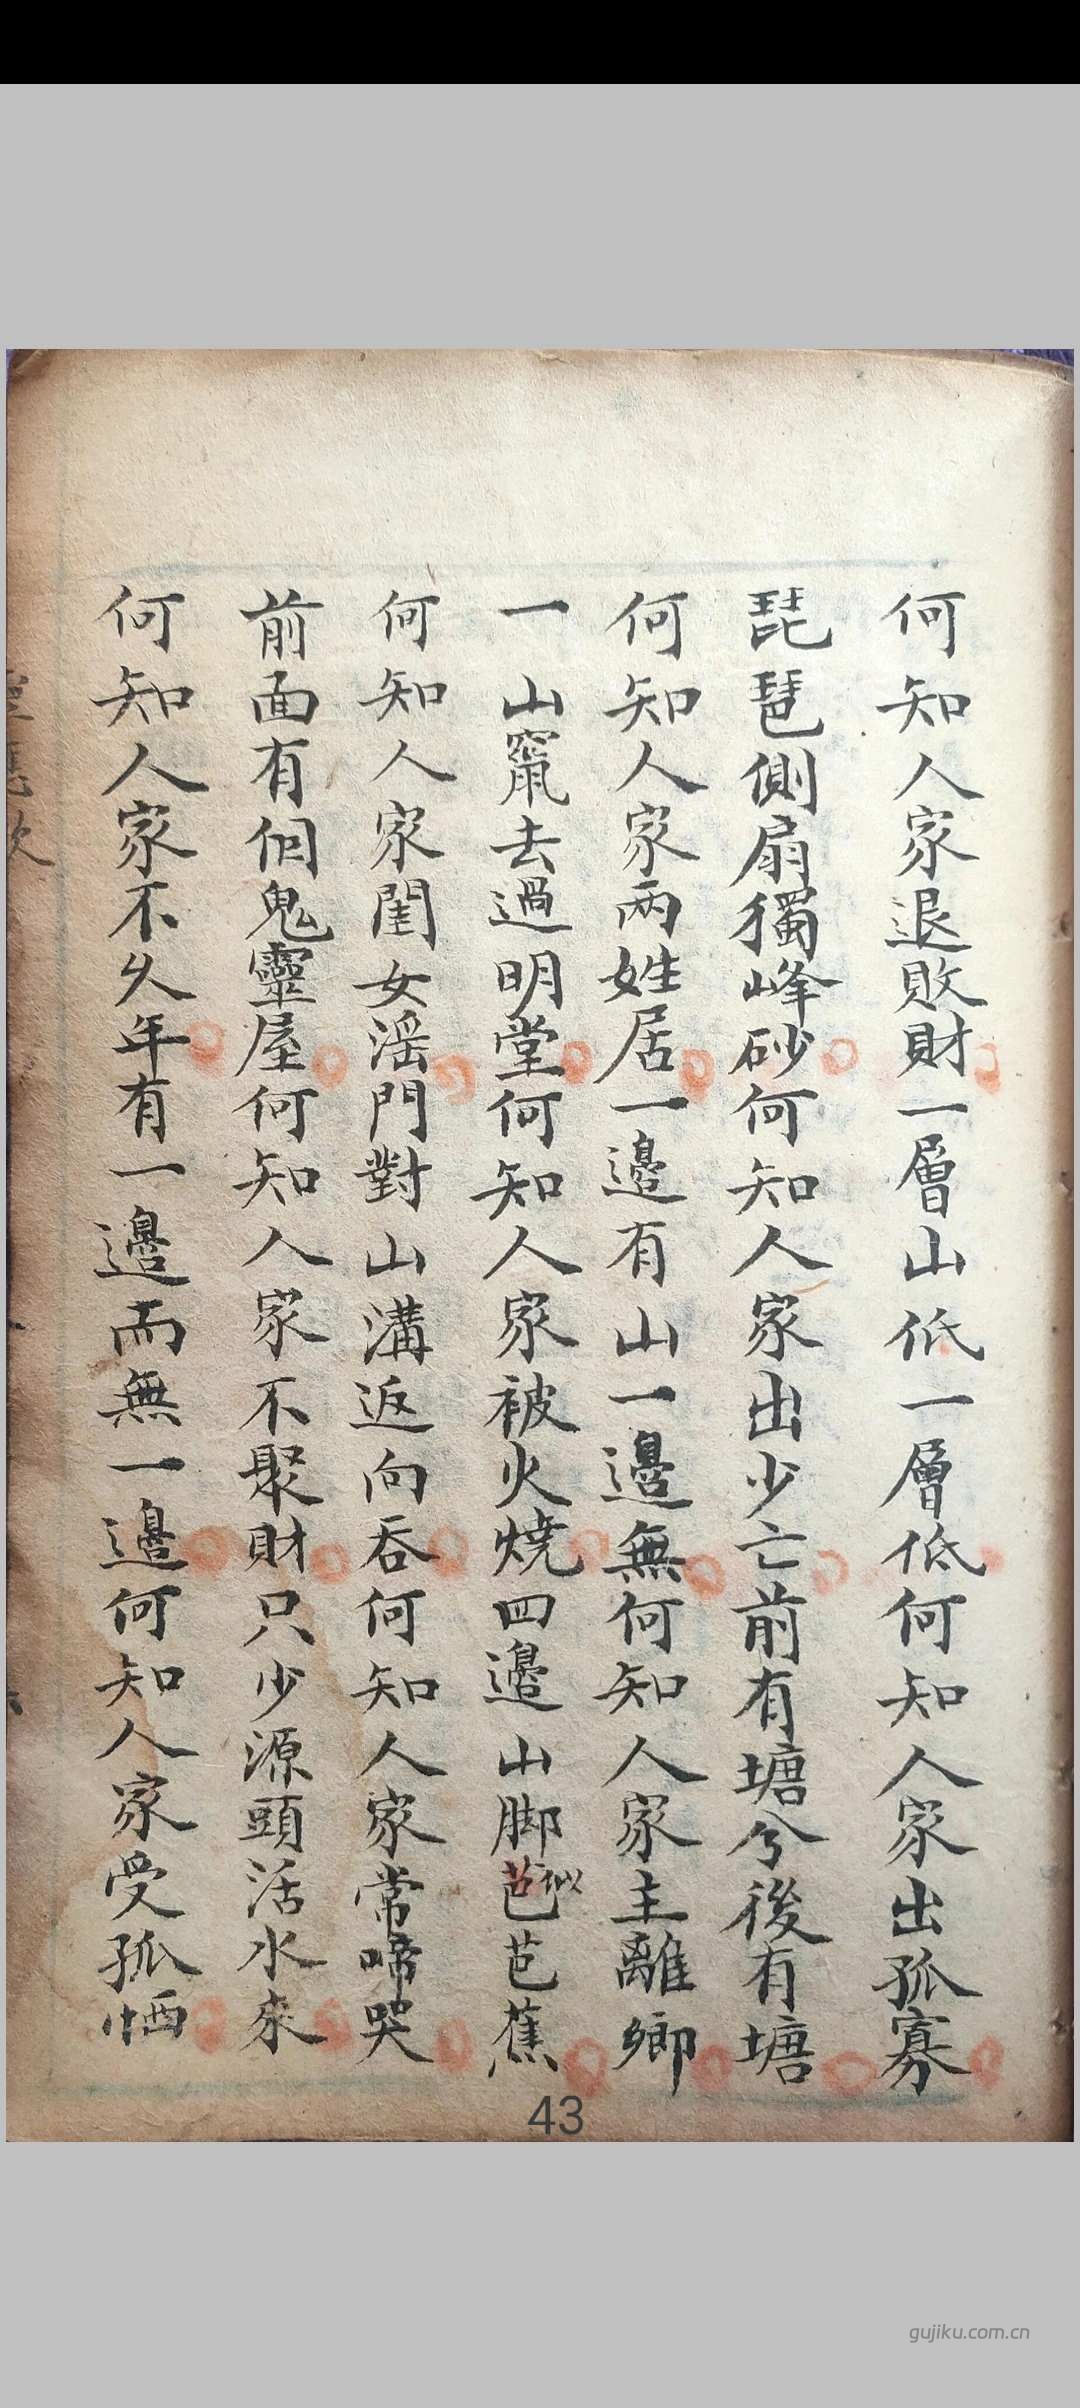 何知人家退敗財一層山低一層低何知人家出孤寡
琵琶側扇獨峰砂何知人家出少亡前有塘兮後有塘
何知人家兩姓居一邊有山一邊無何知人家主離鄉
一山竄去過明堂何知人家被火燒四邊山脚芭似芭蕉
何知人家閨女滛門對山溝返向吞何知人家常啼哭
前面有個鬼靈屋何知人家不聚財只少源頭活水來
何知人家不久年有一邊而無一邊何知人家受孤恓
43
gujiku.com.cn